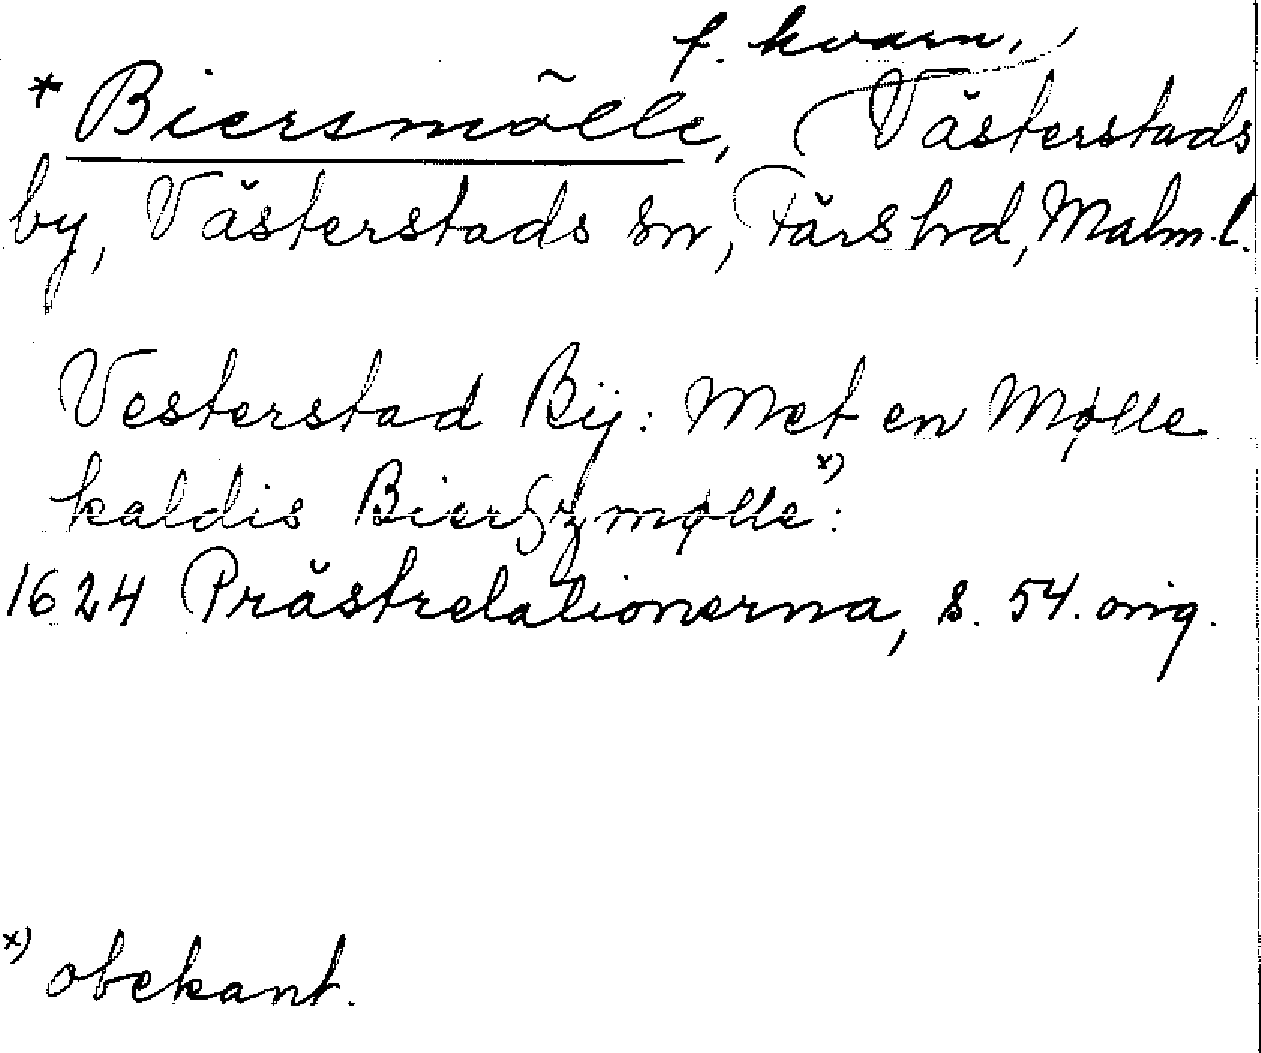 f. kvarn,
* Biersmölle, Västerstads
by, Västerstads sn, Färs hd, Malm. l.
Vesterstad Bÿ: Met en Mølle
kaldis Bierszmølle x):
1624 Prästrelationerna, s. 54. orig.
x) obekant.